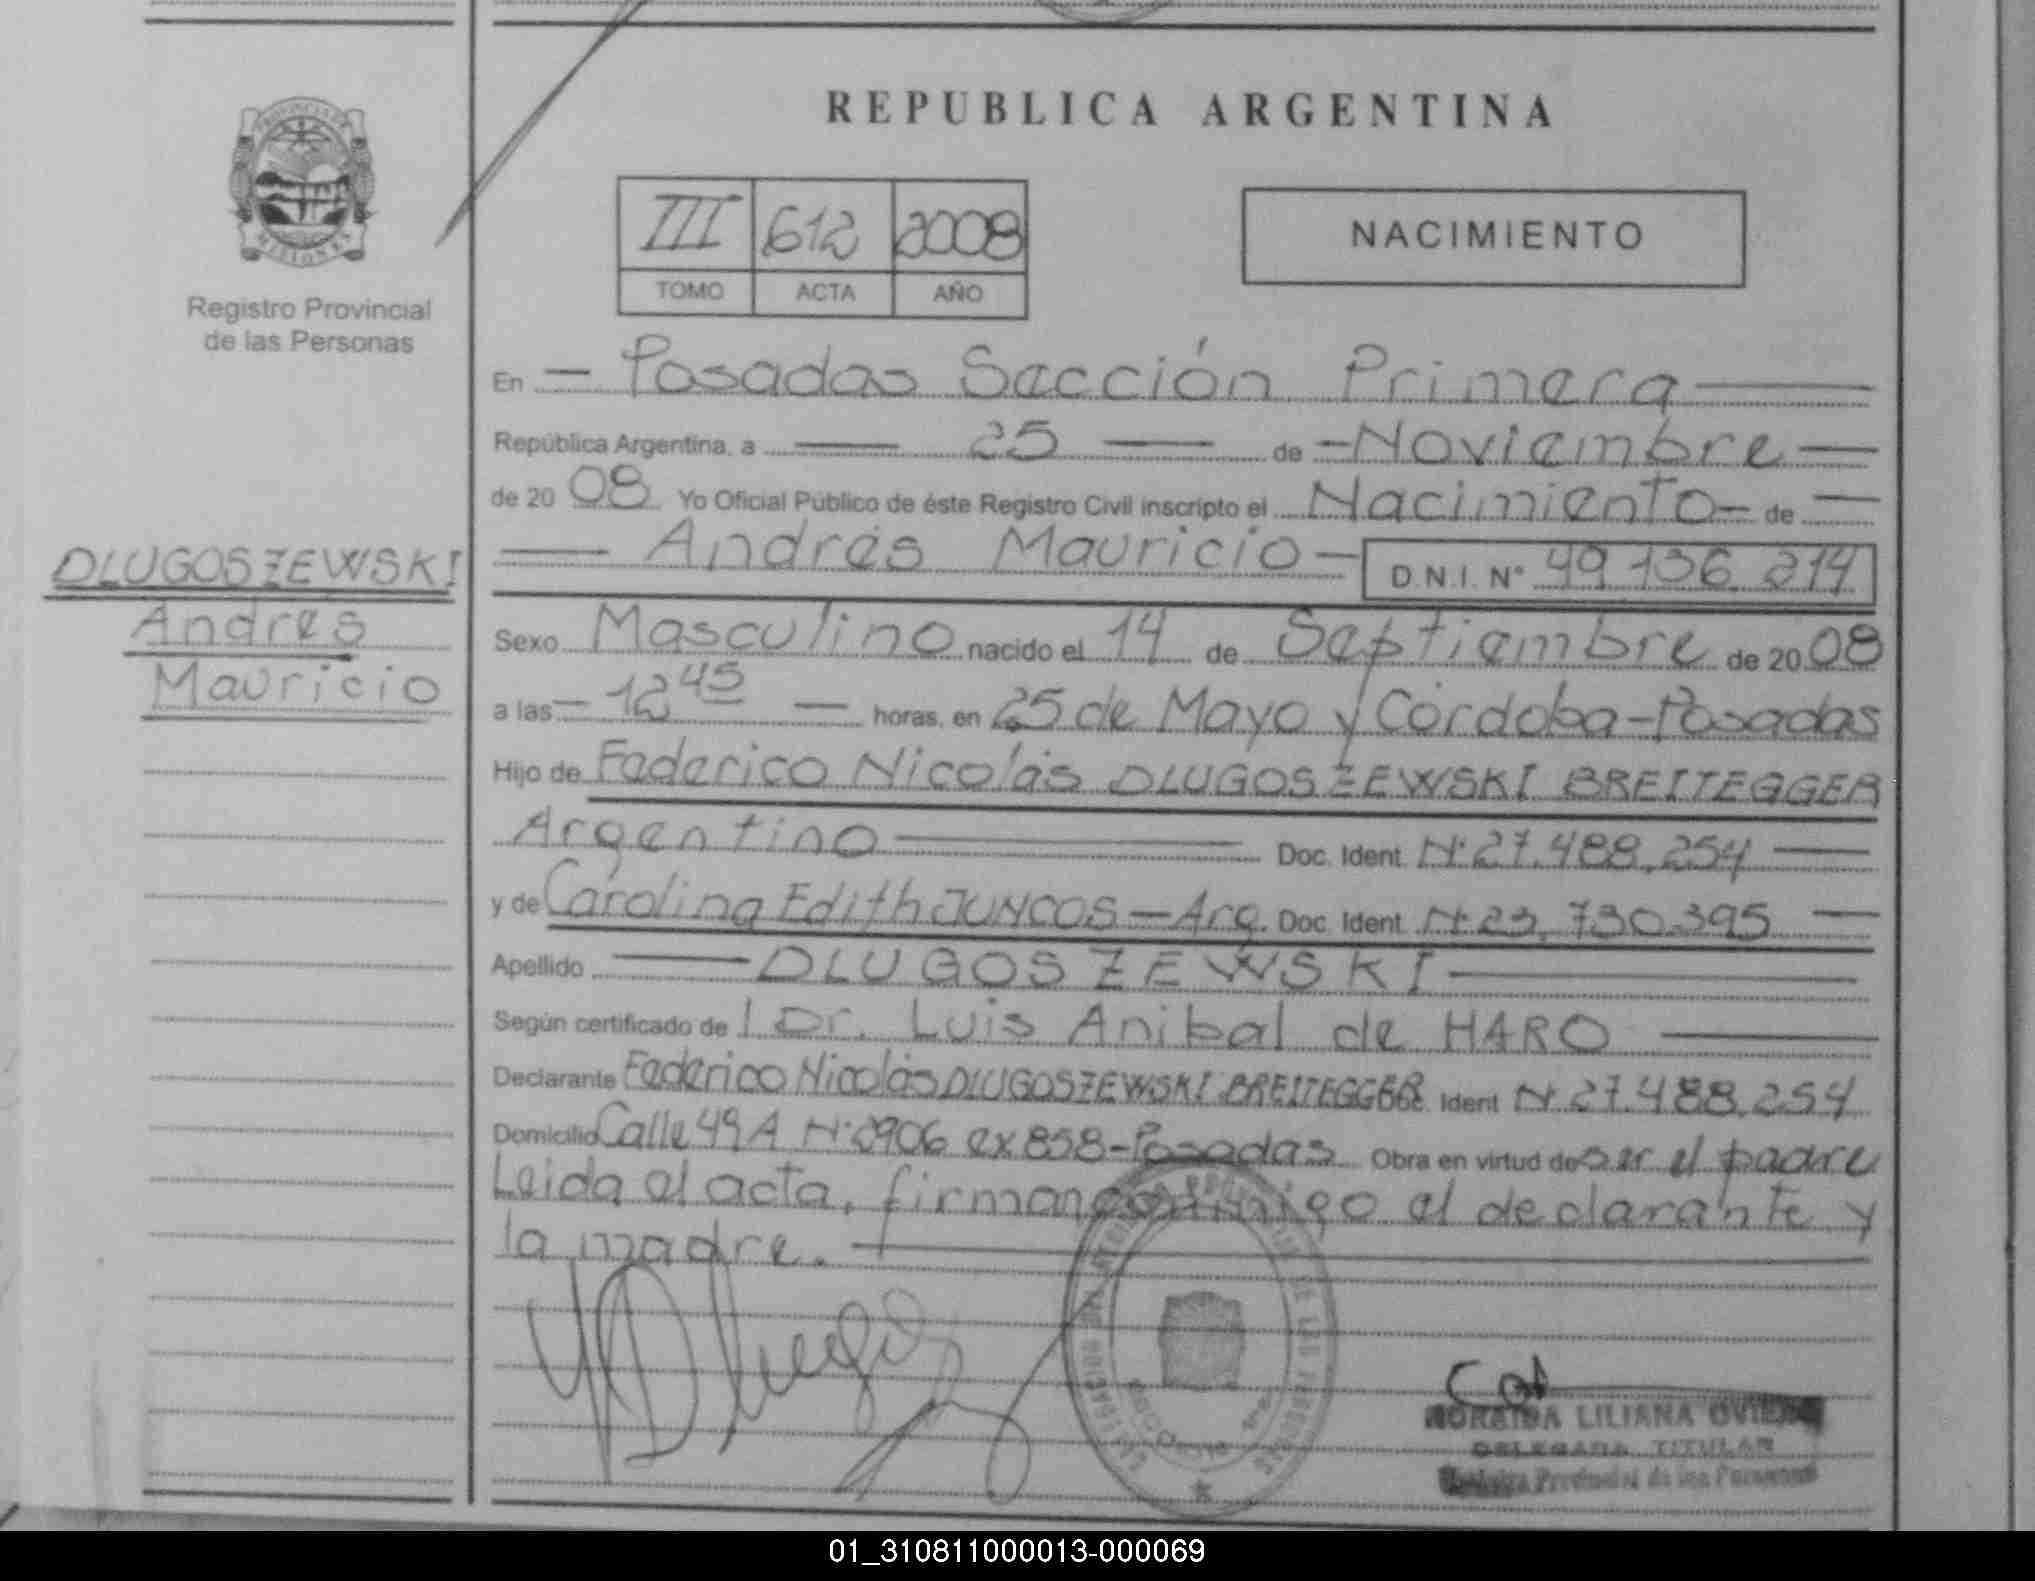 REPUBLICA ARGENTINA
PROVINCIA DE
MISIONES
Registro Provincial
de las Personas
III 612 2008
TOMO ACTA AÑO
NACIMIENTO
En — Posadas Sección Primera —
República Argentina, a — 25 — de — Noviembre —
de 20 08 Yo Oficial Público de éste Registro Civil inscripto el Nacimiento — de —
— Andrés Mauricio — D.N.I. Nº 49 136 214
DLUGOSZEWSKI
Andrés
Mauricio
Sexo Masculino nacido el 14 de Septiembre de 20 08
a las — 12 45 — horas, en 25 de Mayo y Córdoba - Posadas
Hijo de Federico Nicolás DLUGOSZEWSKI BREITEGGER
Argentino — Doc. Ident. Nº 27.488.254 —
y de Carolina Edith JUNCOS — Arg. Doc. Ident. Nº 23.730.395 —
Apellido — DLUGOSZEWSKI —
Según certificado de l Dr. Luis Anibal de HARO —
Declarante Federico Nicolás DLUGOSZEWSKI BREITEGGER Ident Nº 27.488.254
Domicilio Calle 49 A Nº 2906 ex 858 - Posadas Obra en virtud de ser el padre
Leida el acta, firman conmigo el declarante y
la madre. —
LILIANA
DELEGADA TITULAR
Provincial de las Personas
01_310811000013-000069